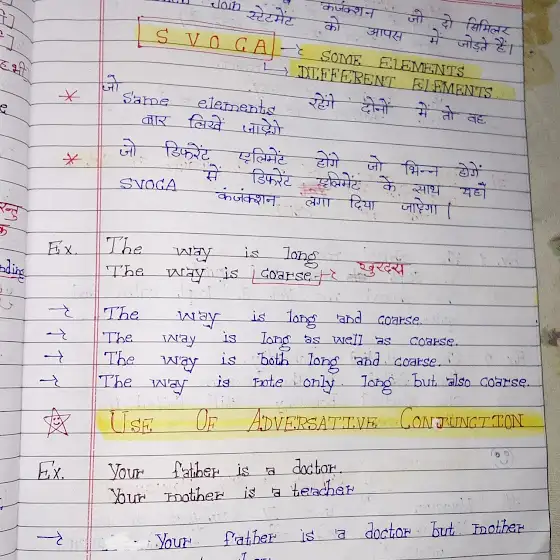 join
कंजंक्शन जो दो सिमिलर
स्टेटमेंट को आपस में जोड़ते हैं।
S V O C A → SOME ELEMENTS
→ DIFFERENT ELEMENTS
* जो Same elements रहेंगे दोनों में तो वह
बार लिखें जाऐगे
* जो डिफरेंट एलिमेंट होंगे जो भिन्न होगें
SVOCA में डिफरेंट एलिमेंट के साथ यहाँ
कंजंक्शन लगा दिया जाऐगा।
Ex. The way is long
The way is coarse → खुरदरा
→ The way is long and coarse.
→ The way is long as well as coarse.
→ The way is both long and coarse.
→ The way is note only long but also coarse.
USE OF ADVERSATIVE CONJUNCTION
Ex. Your father is a doctor.
Your mother is a teacher
→ Your father is a doctor but mother